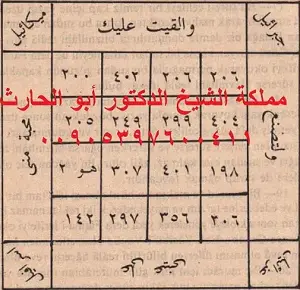 جبرائيل والقيت عليك ميكائيل
٢٠٦ ٢٠٦ ٤٠٢ ٢٠٠
مملكة الشيخ الدكتور أبو الحارث
ولتصنع
٤٠٤ ٢٩٩ ٢٤٩ ٢٠٥
محبة منى
٠٠٩٠٥٣٩٧٦٠٠٤١١
١٩٨ ٤٠١ ٣٠٧ هو ٢
٢٠٦ ٣٥٦ ٢٩٧ ١٤٢